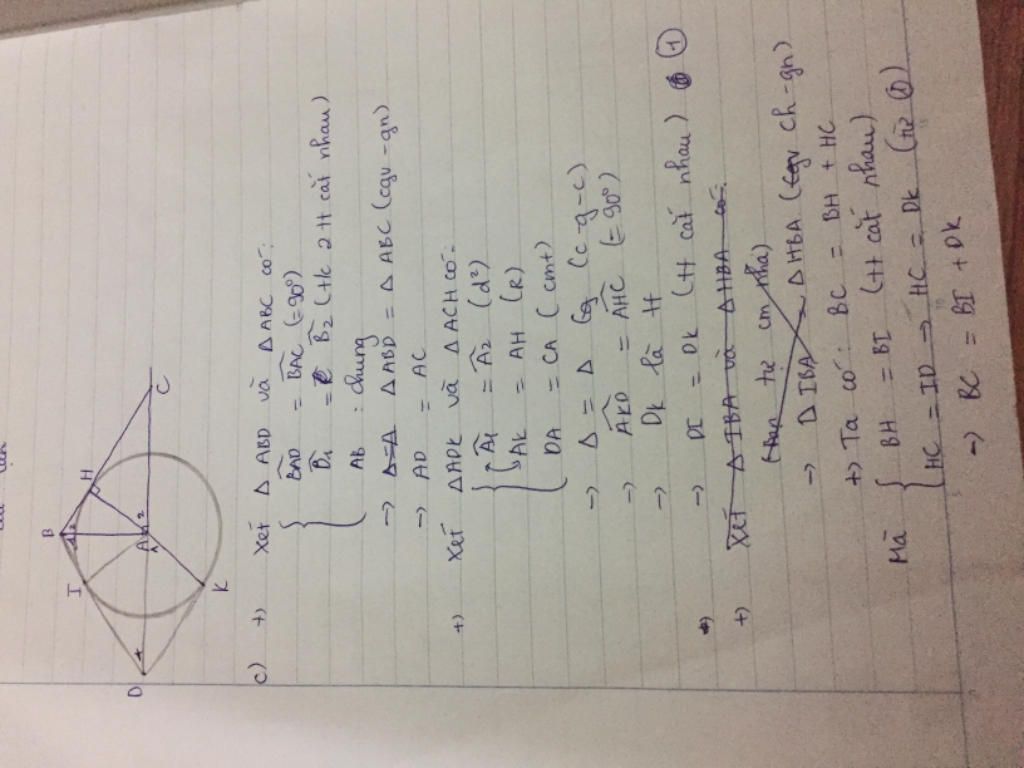 B
I
H
A
1
2
C
D
K
c) +) Xét Δ ABD và Δ ABC có:
BAD = BAC (= 90°)
B1 = B2 (t/c 2 tt cắt nhau)
AB : chung
→ Δ ABD = Δ ABC (cgv - gn)
→ AD = AC
+) Xét ΔADK và ΔACH có:
A1 = A2 (đ²)
AK = AH (R)
DA = CA (cmt)
→ Δ = Δ (c-g-c)
→ AKD = AHC (= 90°)
→ DK là tt
→ DI = DK (tt cắt nhau) ①
+) Xét Δ IBA và Δ HBA có:
→ Δ IBA Δ HBA (cgv ch-gn)
+) Ta có: BC = BH + HC
Mà BH = BI (tt cắt nhau)
HC = ID → HC = DK (từ ①)
→ BC = BI + DK